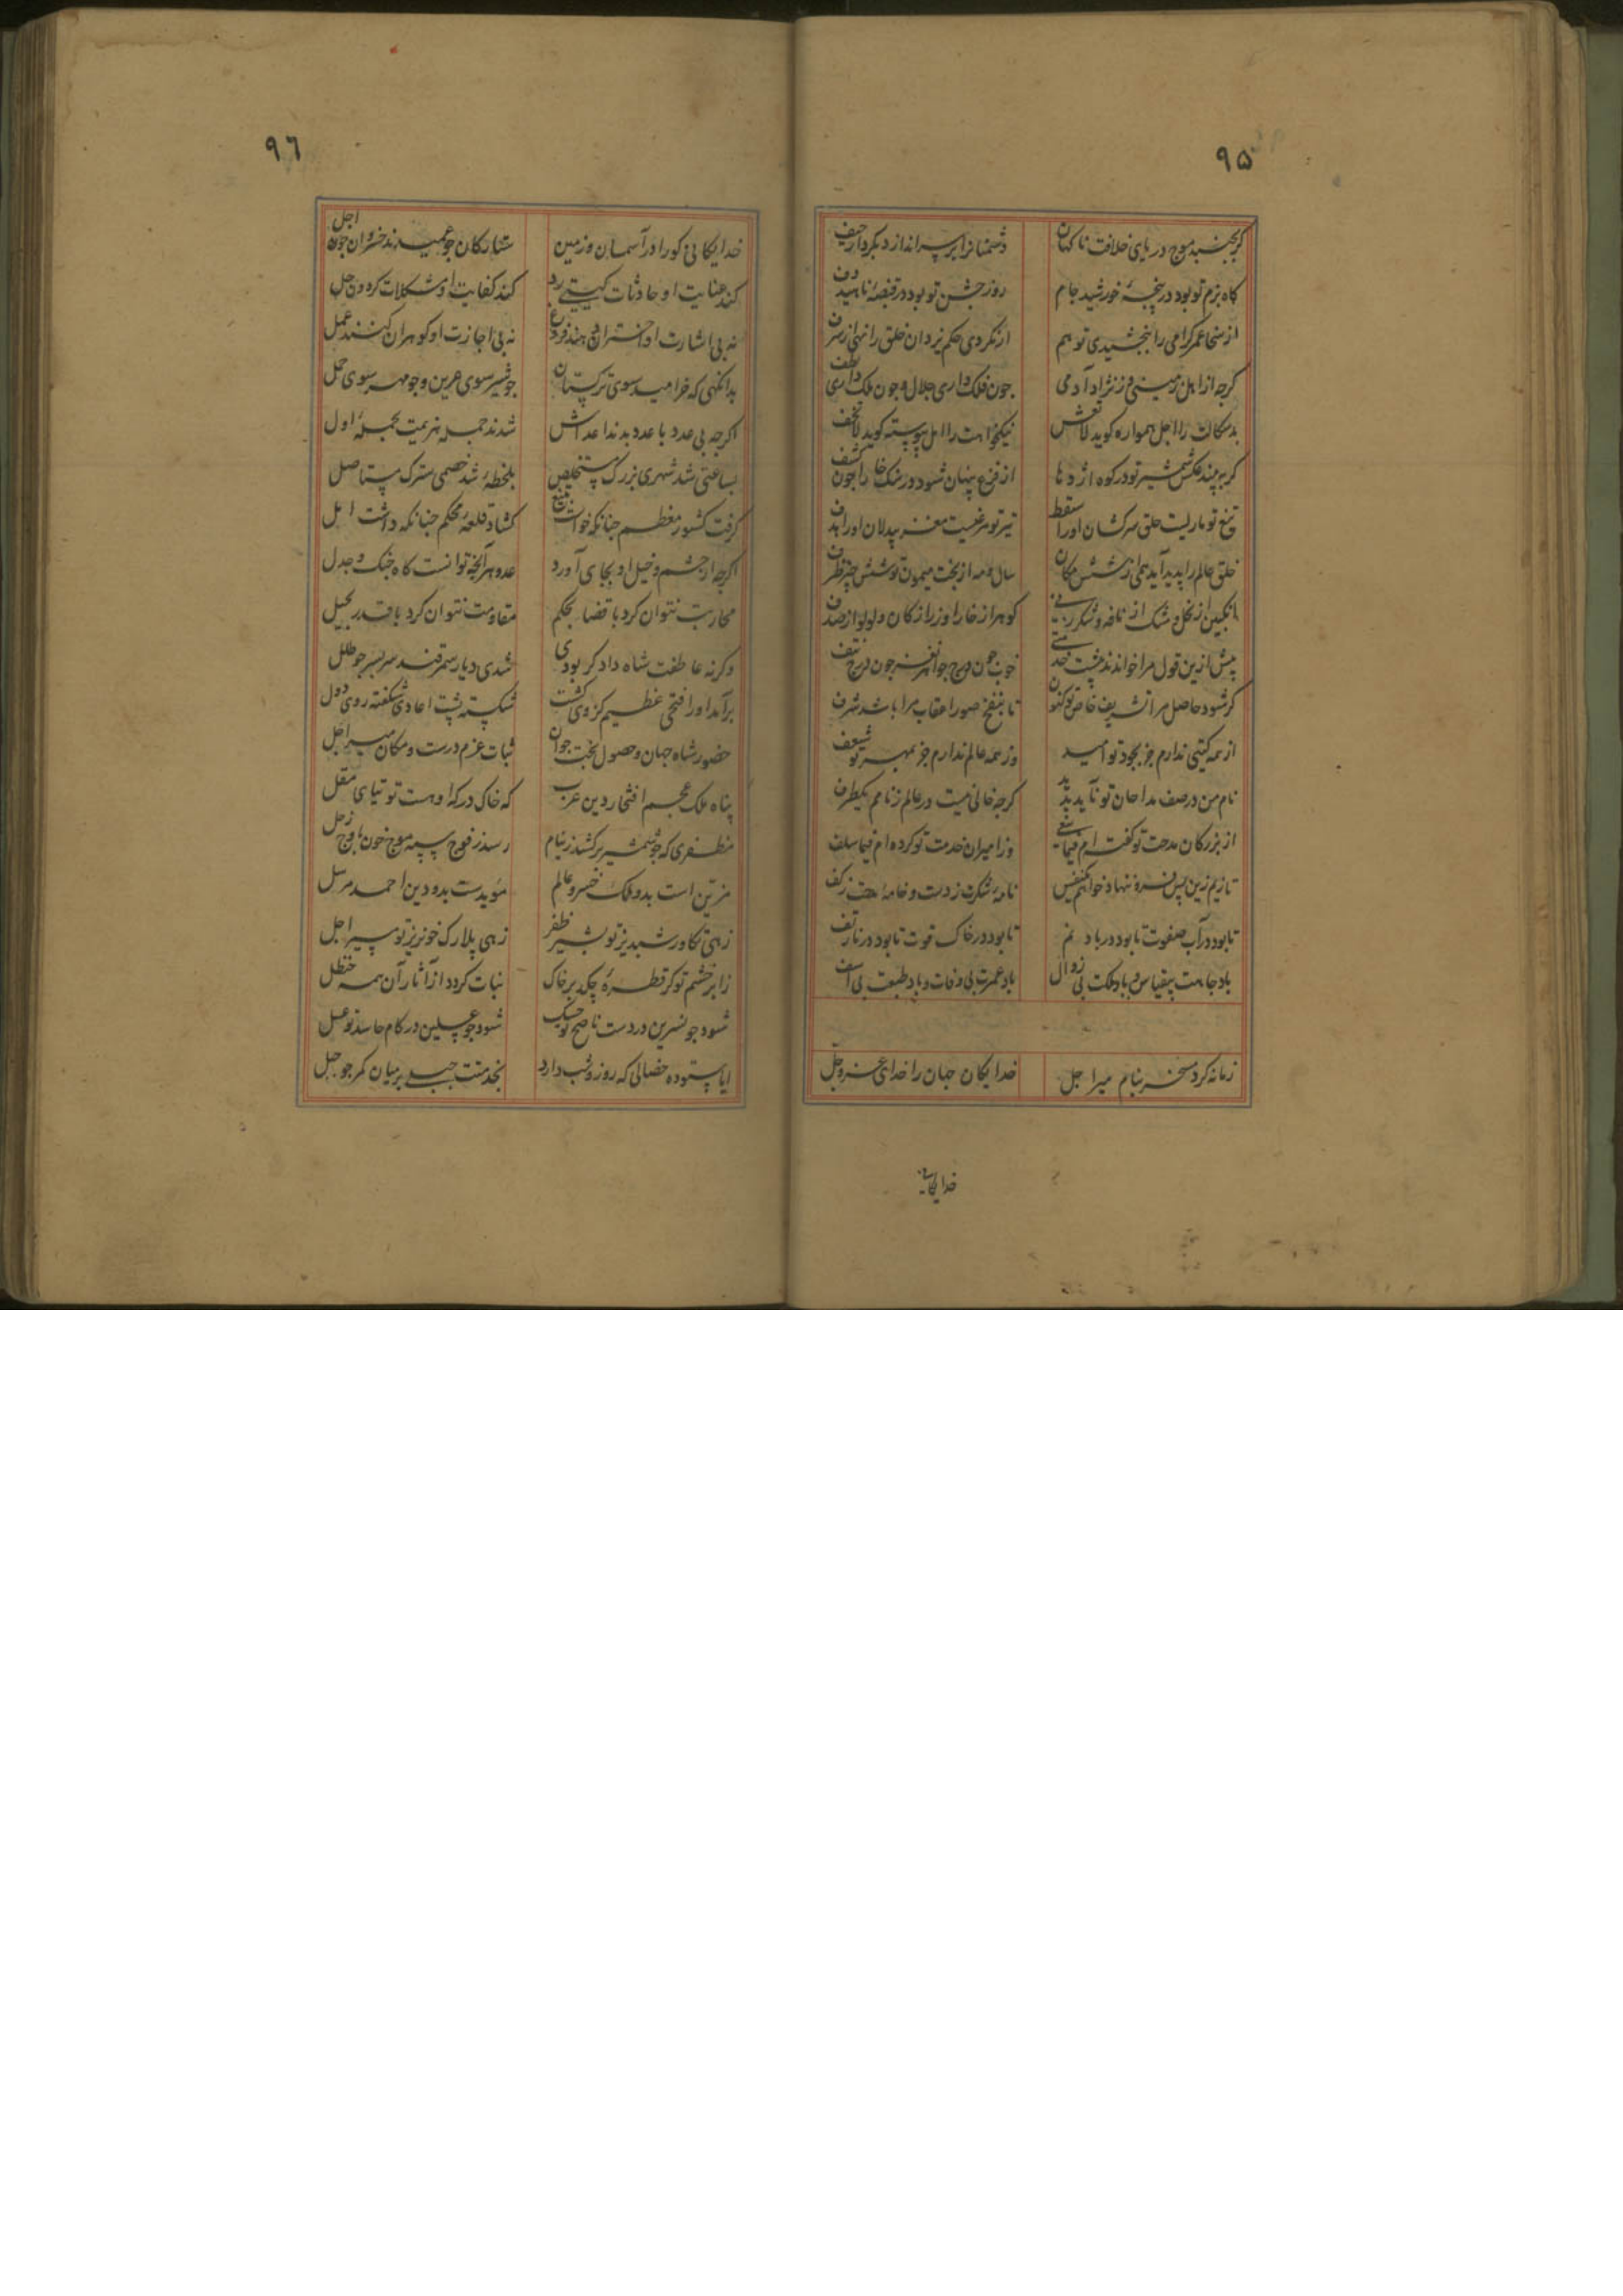 ۹۵
گر بجنبد موج دریای خلافت ناگهان دشمنانرا بر سر اندازد بکردار جیف
گاه بزم تو بود در پنجهٔ خورشید جام روز جشن تو بود در قبضهٔ ناهید دف
از سخا عمر گرامی را ببخشیدی تو هم ار نکردی حکم یزدان خلق را نهی از سرف
گرچه از اهل زمینی وز نژاد آدمی چون فلک داری جلال و چون ملک داری لطف
بدسگالت را اجل همواره گوید لا تعش نیکخواهت را امل پیوسته گوید لا تخف
گر ببیند عکس شمشیر تو در کوه اژدها از فزع پنهان شود در سنگ خارا چون کشف
تیغ تو ماریست حلق سرکشان او را سقط تیر تو مرغیست مغز بیدلان او را هدف
خلق عالم را پدید آید همی زشش مکان سال و مه از بخت میمون تو شش چیز طرف
انگبین از نحل و مشک از نافه و شکر ز نی گوهر از خارا و زر از کان و لولو از صدف
پیش ازین قول مرا خواندند چشت
گر شود حاصل مرا تشریف خاص تو کنون تا بنفخ صور اعقاب مرا باشد شرف
از همه گیتی ندارم جز بجود تو امید وز همه عالم ندارم جز بمهر تو شعف
نام من در صف مداحان تو ناید پدید گرچه خالی نیست در عالم ز نامم یکطرف
از بزرگان مدحت تو گفته ام فیما بقی وز امیران خدمت تو کرده ام فیما سلف
تا زیم زین پس فرو ننهاد خواهم یکنفس نامهٔ شکرت ز دست و خامهٔ مدحت ز کف
تا بود در آب صفوت تا بود در باد نم تا بود در خاک قوت تا بود در نار تف
باد جاهت بیقیاس و باد ملکت بی زوال باد عمرت بی وفات و باد طبعت بی اسف
زمانه کرد مسخر بنام میر اجل خدایگان جهان را خدای عز و جل
خدایگانی
۹۶
خدایگانی کورا در آسمان و زمین ستارگان چو عبیدند خسروان چو اجل
کند عنایت او حادثات گیتی رد کند کفایت او مشکلات گردون حل
نه بی اشارت او اختران دهند فروغ نه بی اجازت او گوهران کنند عمل
بدانگهی که خرامید سوی ترکستان چو شیر سوی عرین و چو مهر سوی حمل
اگرچه بی عدد با عدد بدند اعداش شدند جمله هزیمت بحملهٔ اول
بساعتی شد شهری بزرگ مستخلص بلحظهٔ شد خصمی سترگ مستاصل
گرفت کشور معظم چنانکه خواست بتیغ گشاد قلعهٔ محکم چنانکه داشت امل
اگرچه از حشم و خیل او بجای آورد عدو هر آنچه توانست گاه جنگ و جدل
محاربت نتوان کرد با قضا بحکم مقاومت نتوان کرد با قدر بحیل
وگرنه عاطفت شاه دادگر بودی شدی دیار سمرقند سربسر چو طلل
برآمد او را فتحی عظیم کز وی گشت شکسته پشت اعادی شکفته روی دول
حضور شاه جهان و حصول بخت جوان ثبات عزم درست و مکان میر اجل
پناه ملک عجم افتخار دین عرب که خاک درگه او هست توتیای مقل
مظفری که چو شمشیر برکشد ز نیام رسد ز فوج سپه موج خون باوج زحل
مزین است بدو ملک خسرو عالم مؤیدست بدو دین احمد مرسل
زهی تکاور شبدیز تو بشیر ظفر زهی پلارک خونریز تو سپیر اجل
ز ابر خشم تو گر قطرهٔ چکد بر خاک نبات گردد از آثار آن همه حنظل
شود چو نسرین در دست ناصح تو خسک شود چو غسلین در کام حاسد تو عسل
ایا ستوده خصالی که روز و شب دارد بخدمتت جبلی بر میان کمر چو جبل